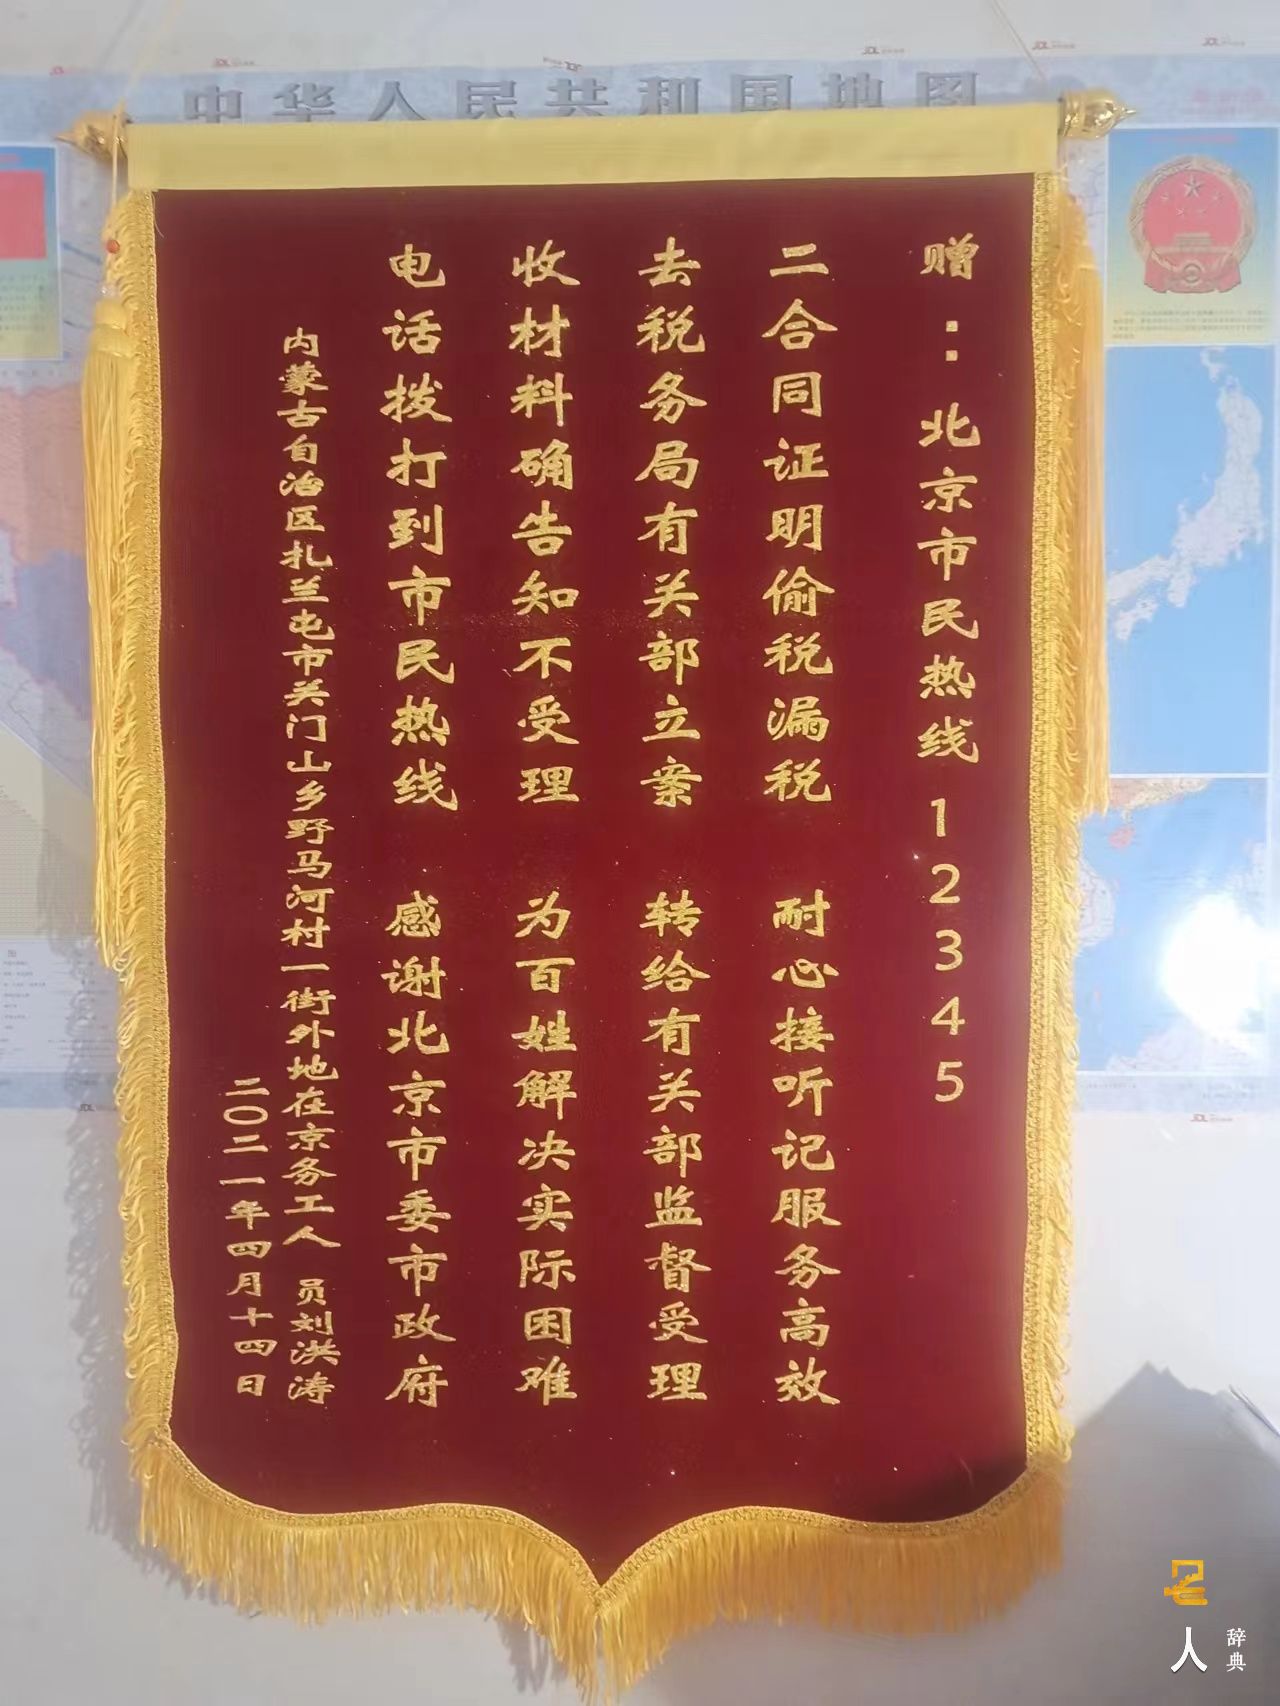 中华人民共和国地图
赠：北京市民热线12345
二合同证明偷税漏税 耐心接听记服务高效
去税务局有关部立案 转给有关部监督受理
收材料确告知不受理 为百姓解决实际困难
电话拨打到市民热线 感谢北京市委市政府
内蒙古自治区扎兰屯市关门山乡野马河村一街外地在京务工人 员刘洪涛
二〇二一年四月十四日
名人
辞典